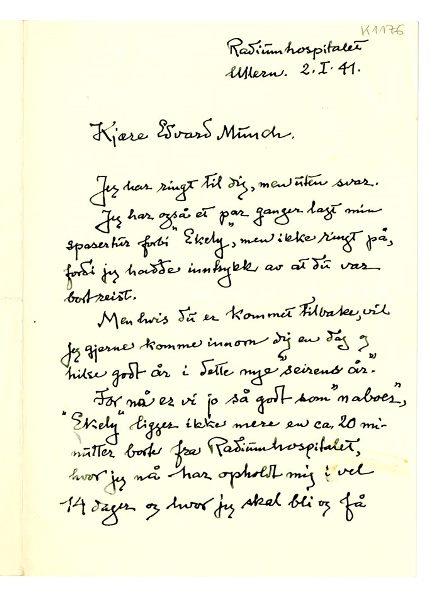 K1176
Radiumhospitalet
Ullern. 2.I.41.
Kjære Edvard Munch.
Jeg har ringt til dig, men uten svar.
Jeg har også et par ganger lagt min
spasertur forbi "Ekely", men ikke ringt på,
fordi jeg hadde inntrykk av at du var
bortreist.
Men hvis du er kommet tilbake, vil
jeg gjerne komme innom dig en dag og
hilse godt år i dette nye "seirens år".
For nå er vi jo så godt som "naboer",
"Ekely" ligger ikke mere en ca. 20 mi-
nutter borte fra Radiumhospitalet,
hvor jeg nå har opholdt mig i vel
14 dager og hvor jeg skal bli og få